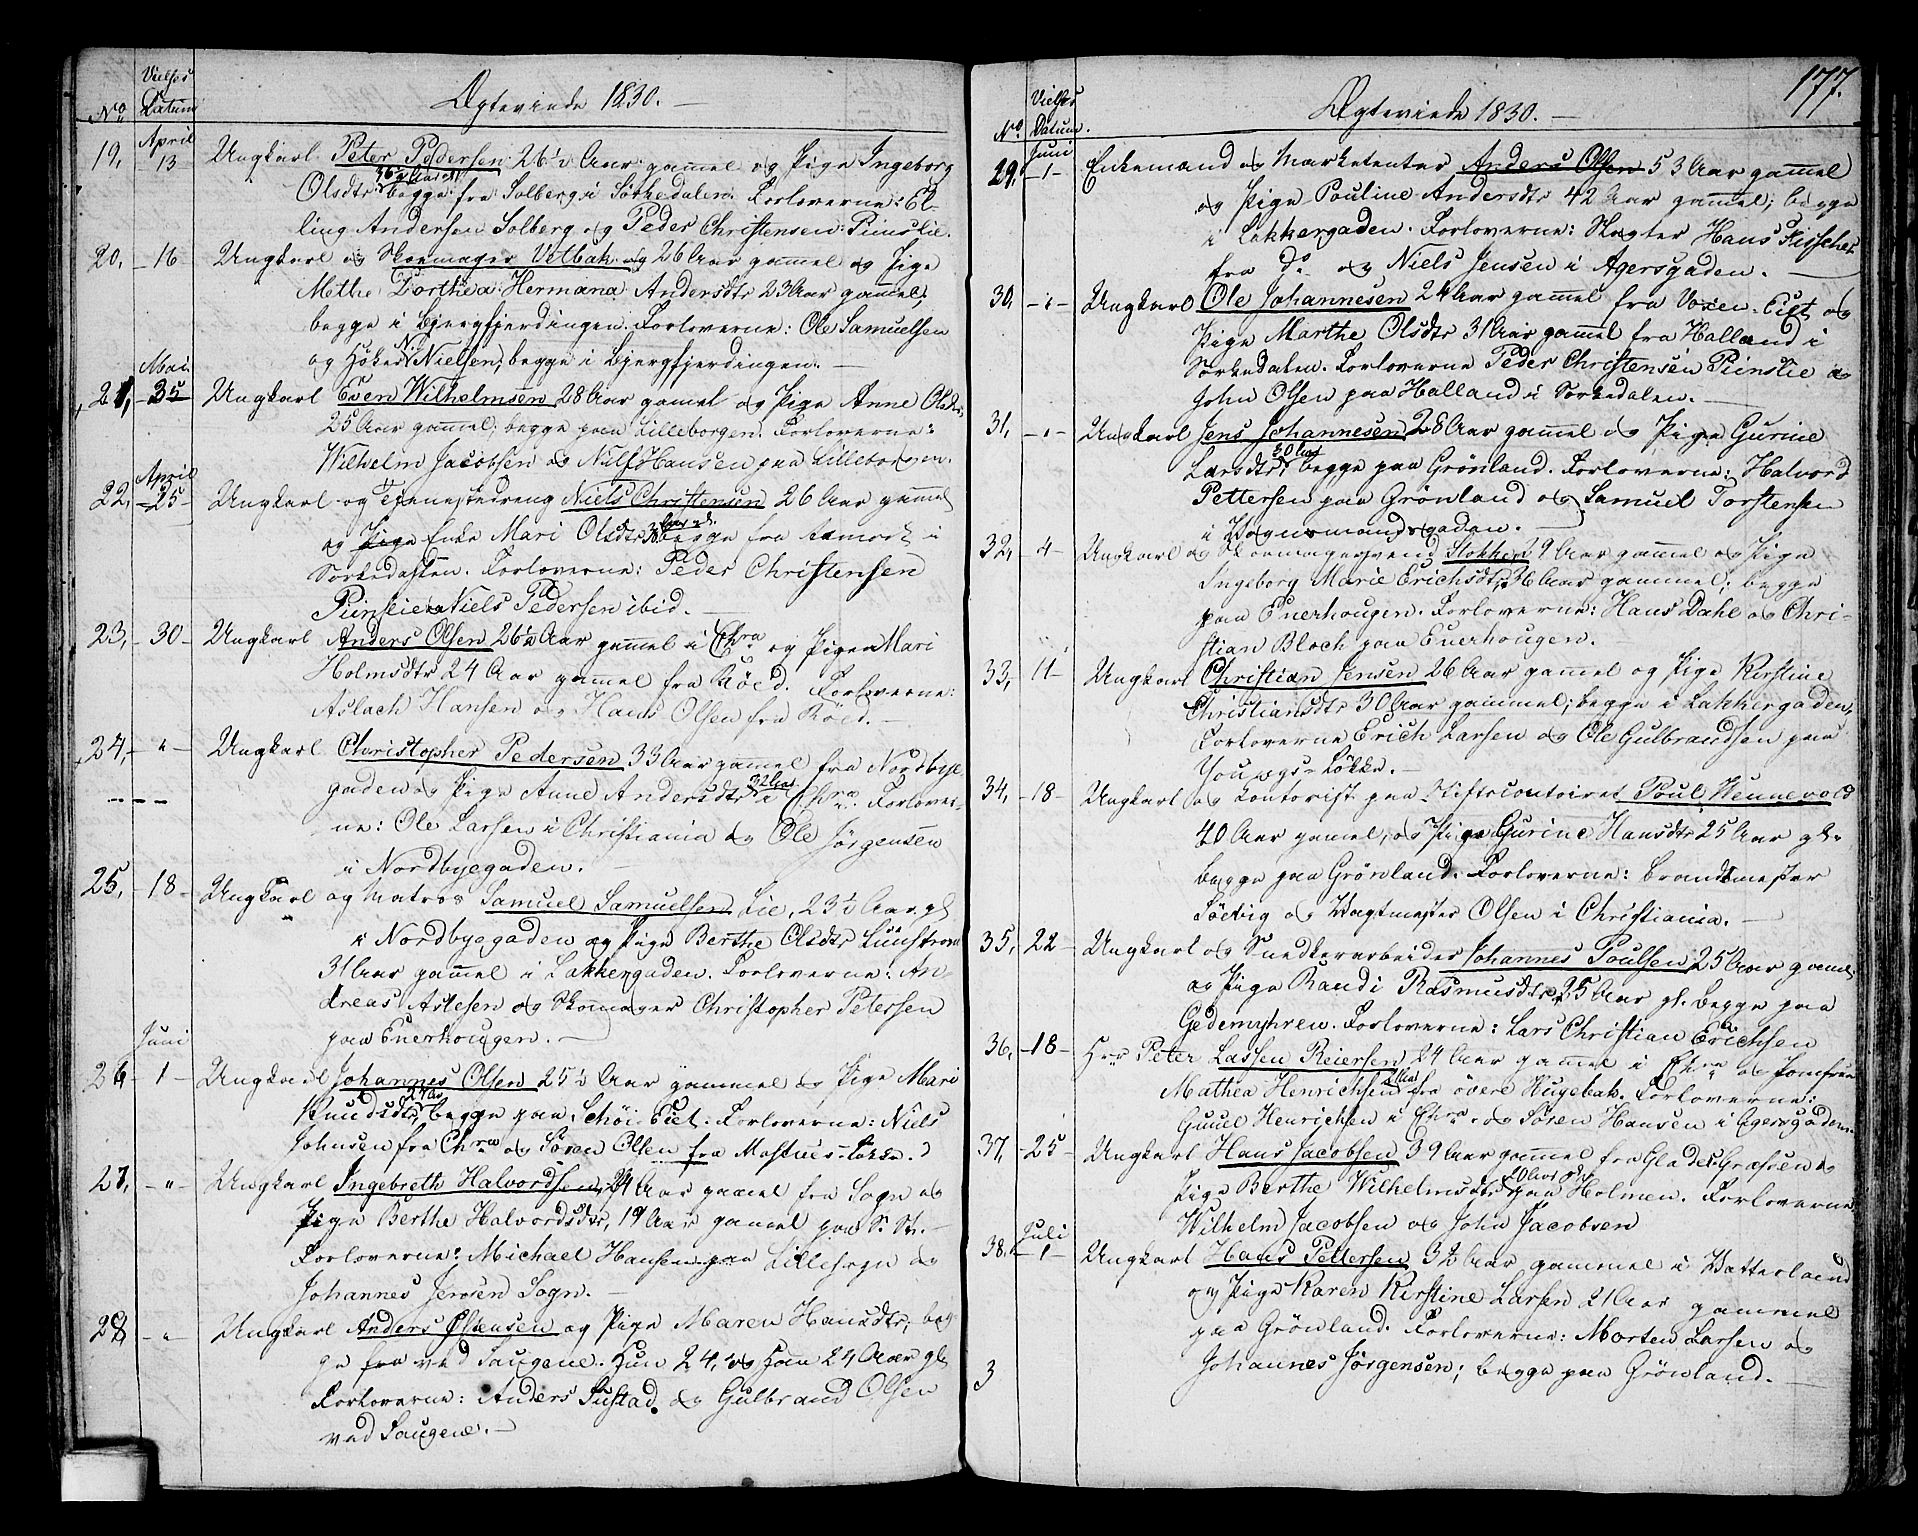 Ægteviede 1830.
Vielses
No. Datum
April
19, 13 Ungkarl Peter Pedersen 26½ Aar gammel og Pige Ingeborg
Olsdtr begge fra Solberg i Sørkedalen. Forloverne: El-
ling Andersen Solberg og Peder Christensen Pinslie.
20, 16 Ungkarl og Skomager Vetbak 26 Aar gammel og Pige
Methe Dorthea Hermana Andersdtr 23 Aar gammel,
begge i Bjergfjerdingen. Forloverne: Ole Samuelsen
og Høker N Nielsen, begge i Bjergfjerdingen.
Mai
21, 25 Ungkarl Even Wilhelmsen 28 Aar gamel og Pige Anne Olsdtr
25 Aar gammel, begge paa Lilleborgen. Forloverne:
Wilhelm Jacobsen og Nulf Hansen paa Lilleborgen.
April
22, 25 Ungkarl og Tjenestedreng Niels Christensen 26 Aar gammel
og Pige Enke Mari Olsdtr begge fra Aamodt i
Sørkedalen. Forloverne: Peder Christensen
Pinslie og Niels Pedersen ibid.
23, 30 Ungkarl Anders Olsen 26½ Aar gammel i Chra og Pigen Mari
Holmsdtr 24 Aar gammel fra Røed. Forloverne:
Aslach Hansen og Hans Olsen fra Røed.
24, " Ungkarl Christopher Pedersen 33 Aar gammel fra Nordbye
gaden og Pige Anne Andersdtr 32 Aar i Chra. Forlover-
ne: Ole Larsen i Christiania og Ole Jørgensen
i Nordbyegaden.
25, 18 Ungkarl og Matros Samuel Samuelsen Lie, 23½ Aar gl
i Nordbyegaden og Pige Berthe Olsdtr Lundstrøm
31 Aar gammel i Lakkergaden. Forloverne: An-
dreas Aslesen og Skomager Christopher Petersen
paa Enerhougen.
Juni
26, 1 Ungkarl Johannes Olsen 25½ Aar gammel og Pige Mari
Knudsdtr begge paa Schöi-Eiet. Forloverne: Niels
Johnsen fra Chra og Søren Olsen fra Mostues-Løkke.
27, " Ungkarl Ingebreth Halvordsen 24 Aar gamel fra Sogn og
Pige Berthe Halvordsdtr, 19 Aar gammel paa S. St.
Forloverne: Michael Hansen paa Lillesogn og
Johannes Jensen Sogn.
28 " Ungkarl Anders Hansen og Pige Maren Hansdtr, beg-
ge fra ved Saugene. Hun 24, og Han 24 Aar gl
Forloverne: Anders Sustad og Gulbrand Olsen
ved Saugene.
177.
Ægteviede 1830.
Vielses
No. Datum.
Juni
29, 1 Enkemand og Marketenter Anders Olsen 53 Aar gammel
og Pige Pouline Andersdtr 42 Aar gammel; begge
i Lakkergaden. Forloverne: Slagter Hans Fischer
fra do og Niels Jensen i Agersgaden.
30, " Ungkarl Ole Johannesen 24 Aar gammel fra Voxen-Eiet og
Pige Marthe Olsdtr 31 Aar gammel fra Halland i
Sørkedalen. Forloverne Peder Christensen Pinslie og
John Olsen paa Halland i Sørkedalen.
31, " Ungkarl Jens Johannesen 28 Aar gammel og Pige Gurine
Larsdtr 30 Aar begge paa Grønland. Forloverne: Halvord
Pettersen paa Grønland og Samuel Torstensen
i Vognmandsgaden.
32, 4 Ungkarl og Skomagersvend Slokken 29 Aar gammel og Pige
Ingeborg Marie Erichsdtr 36 Aar gammel; begge
paa Enerhougen. Forloverne: Hans Dahl og Chri-
stian Bloch paa Enerhougen.
33, 11 Ungkarl Christian Jensen 26 Aar gammel og Pige Kirstine
Christiansdtr 30 Aar gammel; begge i Lakkergaden,
Forloverne Erich Larsen og Ole Gulbrandsen paa
Youngs-Løkke.
34, 18 Ungkarl og Kontorist paa Stiftscontoiret Poul Wennevold
40 Aar gammel, og Pige Gurine Hansdtr 25 Aar gl.
begge paa Grønland. Forloverne: Brandmester
Söebig og Vagtmester Olsen i Christiania.
35, 22 Ungkarl og Snedkerarbeider Johannes Poulsen 25 Aar gamel
og Pige Randi Rasmusdtr 25 Aar gl. begge paa
Gedemyhren. Forloverne: Lars Christian Erichsen
36, 18 Hr Peter Lassen Reiersen 24 Aar gammel i Chra og Jomfrue
Mathea Henrichsen fra övere Hugebak. Forloverne:
Guul Henrichsen i Chra og Søren Hansen i Agersgaden.
37, 25 Ungkarl Hans Jacobsen 39 Aar gammel fra Glades Græsen og
Pige Berthe Wilhelmsdtr 20 Aar gl paa Holmen. Forloverne
Wilhelm Jacobsen og John Jacobsen
Juli
38, 1 Ungkarl Hans Pettersen 32 Aar gammel i Vatterland
og Pige Karen Kirstine Larsen 21 Aar gammel
paa Grønland. Forloverne: Morten Larsen og
Johannes Jørgensen; begge paa Grønland.
3